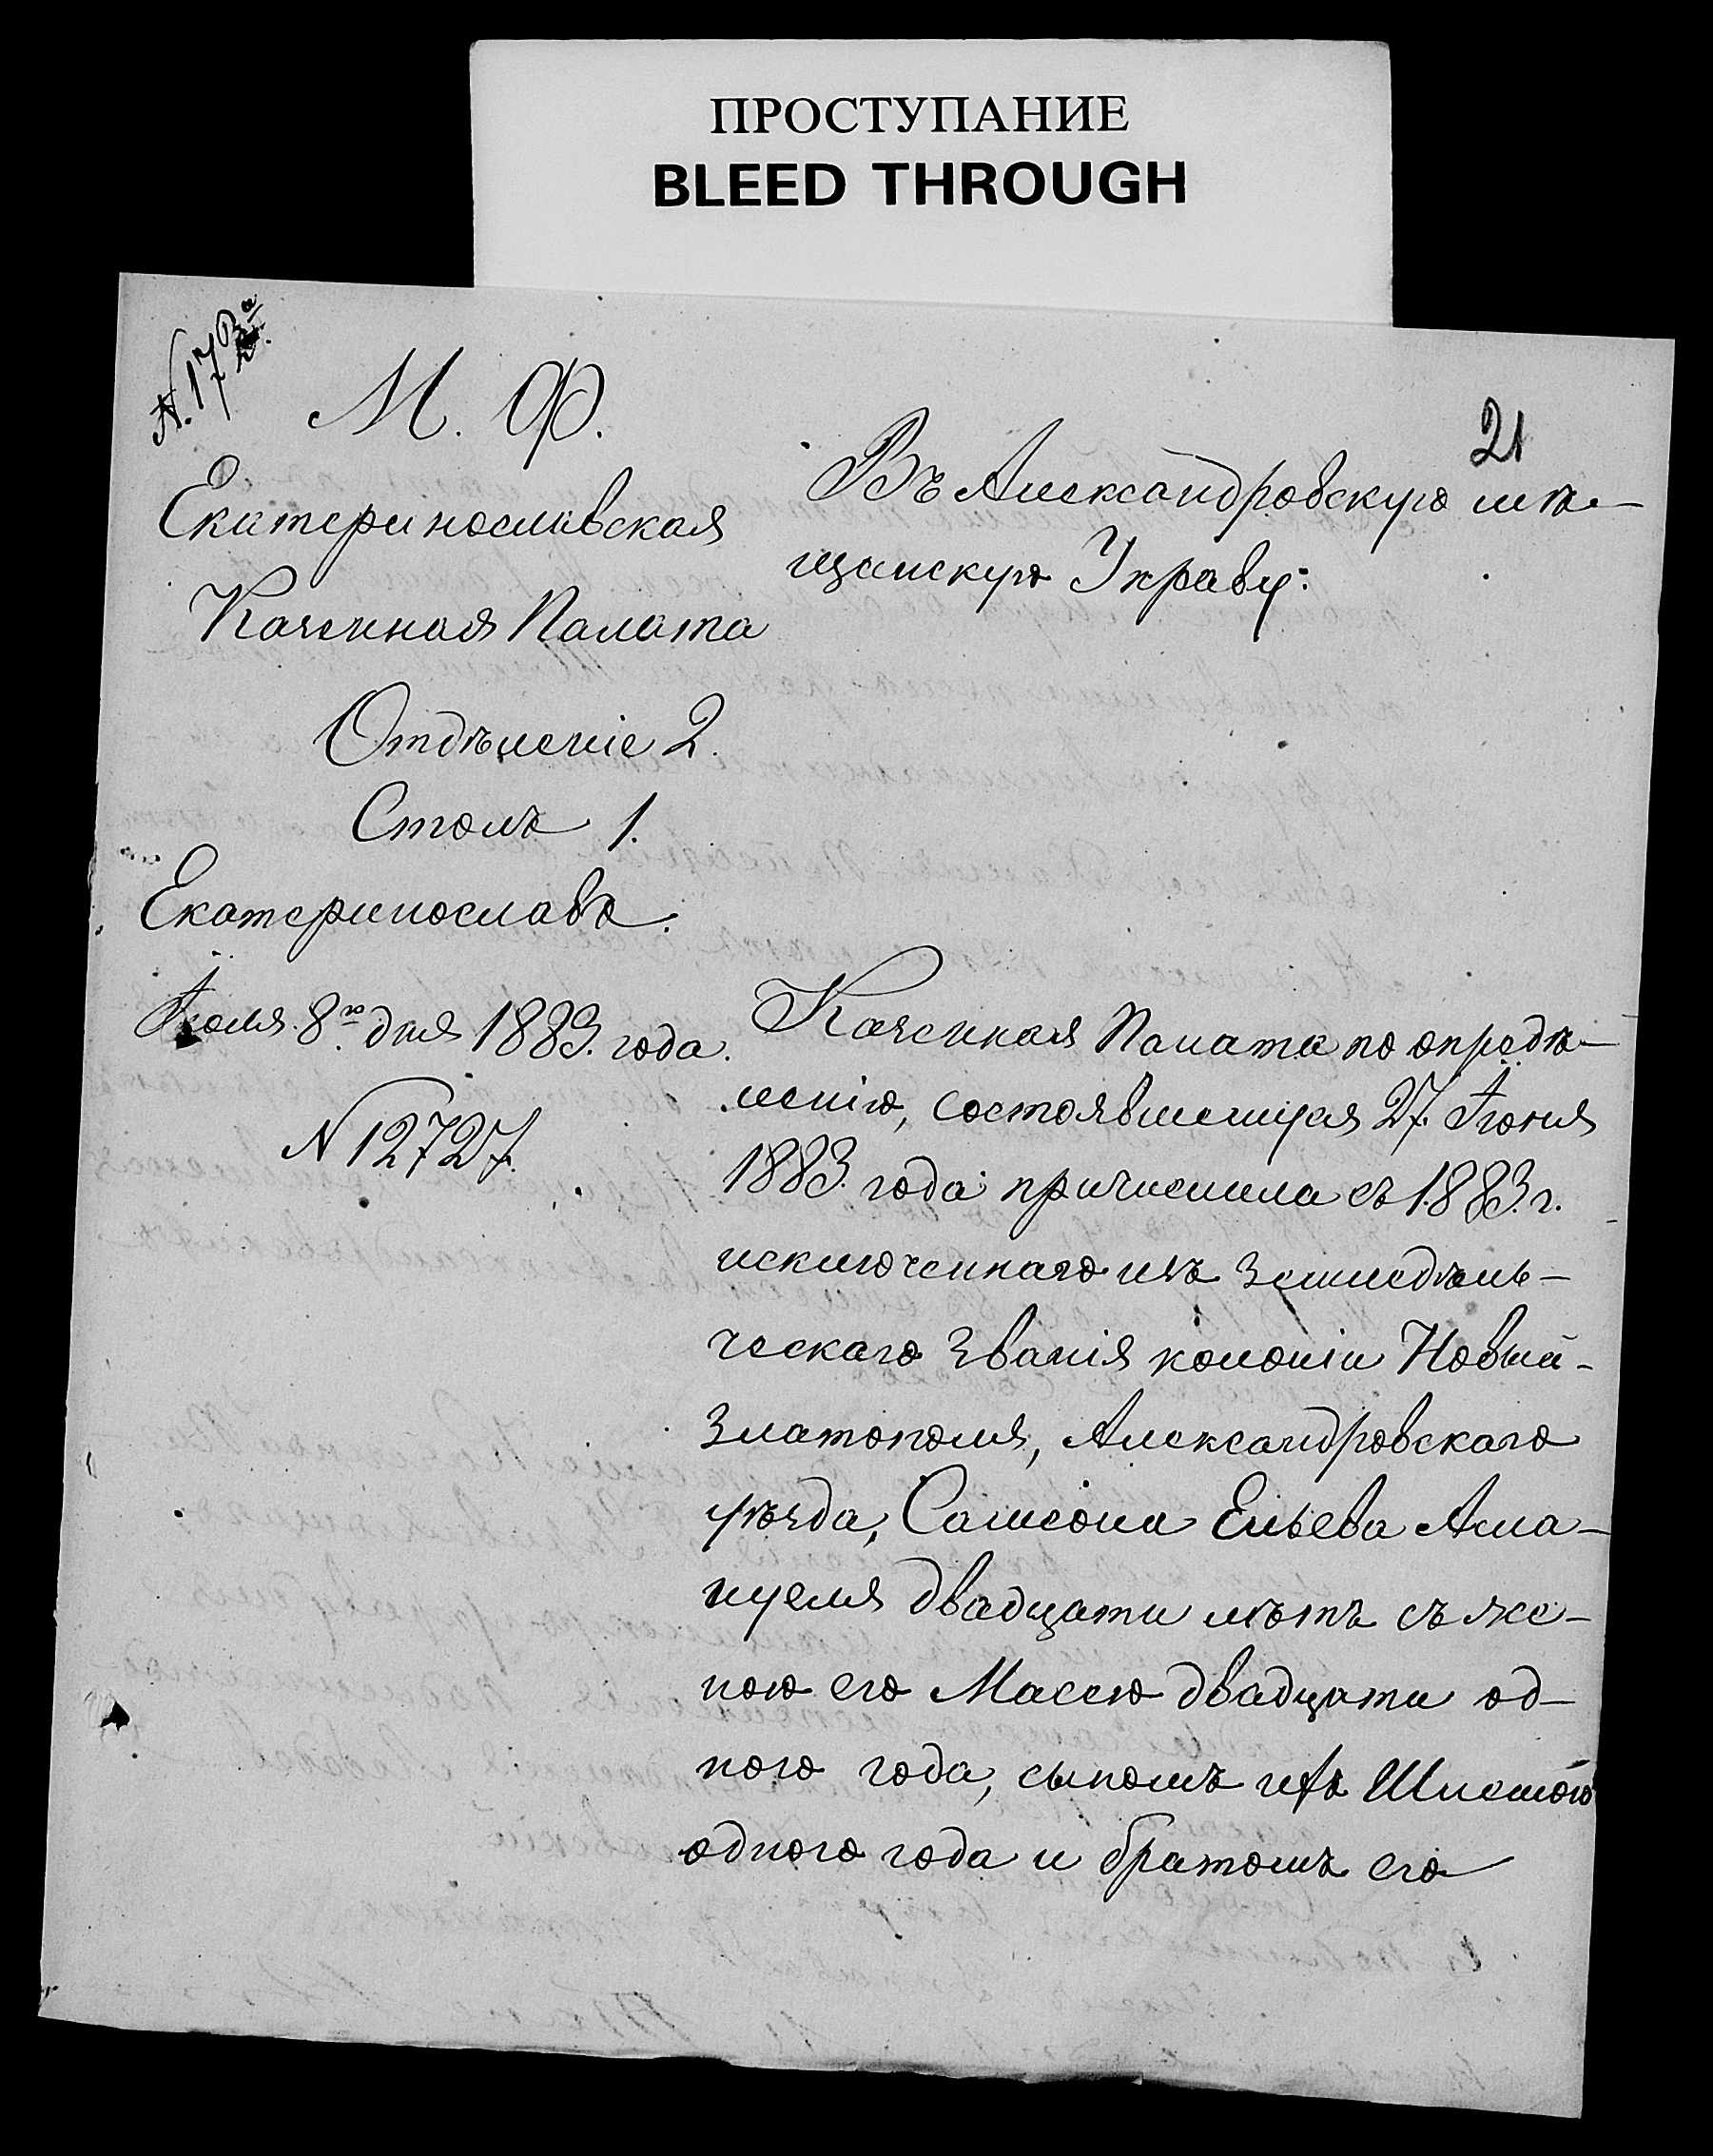 ПРОСТУПАНИЕ
BLEED THROUGH
21
М. Ф.
Екатеринославская
Казенная Палата
Отдѣленіе 2.
Столъ 1.
Екатеринославъ.
Іюля 8го дня 1883. года.
N 12727.
Въ Александровскую мѣ-
щанскую Управу:
Казенная Палата по опредѣ-
ленію, состоявшемуся 27. Іюня
1883. года причислила съ 1883. г.
исключеннаго изъ земледѣль-
ческаго званія колоніи Новый-
Златополя, Александровскаго
уѣзда, Самсона Ельева Ама-
нуеля двадцати лѣтъ съ же-
ною его Масею двадцати од-
ного года, сыномъ ихъ
одного года и братомъ его